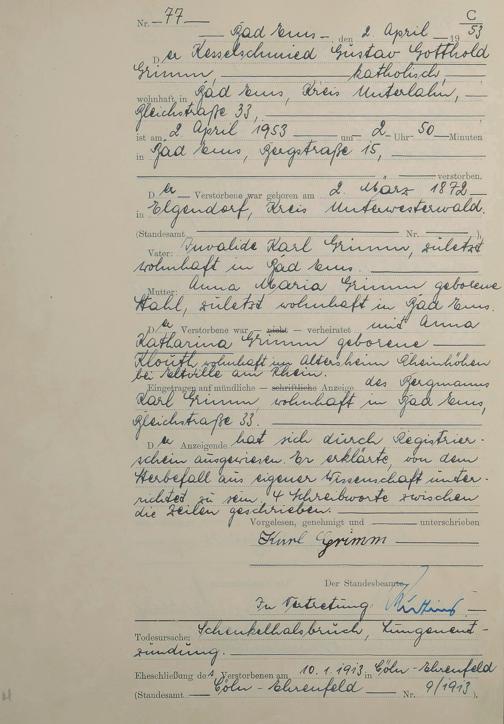 C
Nr. 77
Bad Ems, den 2 April 1953
Der Kesselschmied Gustav Gotthold
Grimm, katholisch,
wohnhaft in Bad Ems, Kreis Unterlahn,
Bleichstraße 33,
ist am 2 April 1953 um 2 Uhr 50 Minuten
in Bad Ems, Bergstraße 15,
verstorben.
Der Verstorbene war geboren am 2. März 1872
in Elgendorf, Kreis Unterwesterwald.
(Standesamt Nr. ),
Vater: Invalide Karl Grimm, zuletzt
wohnhaft in Bad Ems.
Mutter: Anna Maria Grimm geborene
Hahl, zuletzt wohnhaft in Bad Ems.
Der Verstorbene war – nicht – verheiratet mit Anna
Katharina Grimm geborene
Klouth wohnhaft im Altersheim Rheinhöhen
bei Eltville am Rhein.
Eingetragen auf mündliche – schriftliche Anzeige des Bergmanns
Karl Grimm wohnhaft in Bad Ems,
Bleichstraße 33.
Der Anzeigende hat sich durch Registrier-
schein ausgewiesen. Er erklärte, von dem
Sterbefall aus eigener Wissenschaft unter-
richtet zu sein. 4 Schreibworte zwischen
die Zeilen geschrieben.
Vorgelesen, genehmigt und unterschrieben
Karl Grimm
Der Standesbeamte
In Vertretung:
Todesursache: Schenkelhalsbruch, Lungenent-
zündung.
Eheschließung des Verstorbenen am 10.1.1913 in Cöln-Ehrenfeld
(Standesamt Cöln-Ehrenfeld Nr. 9/1913).